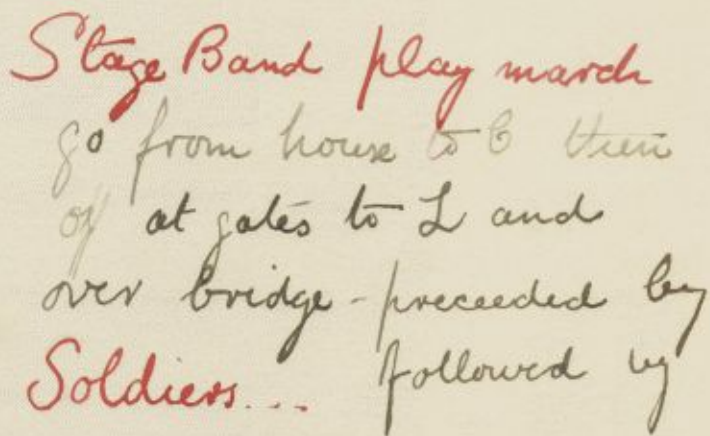 Stage Band play march
go from house to C then
off at gates to L and
over bridge - preceeded by
Soldiers... followed by